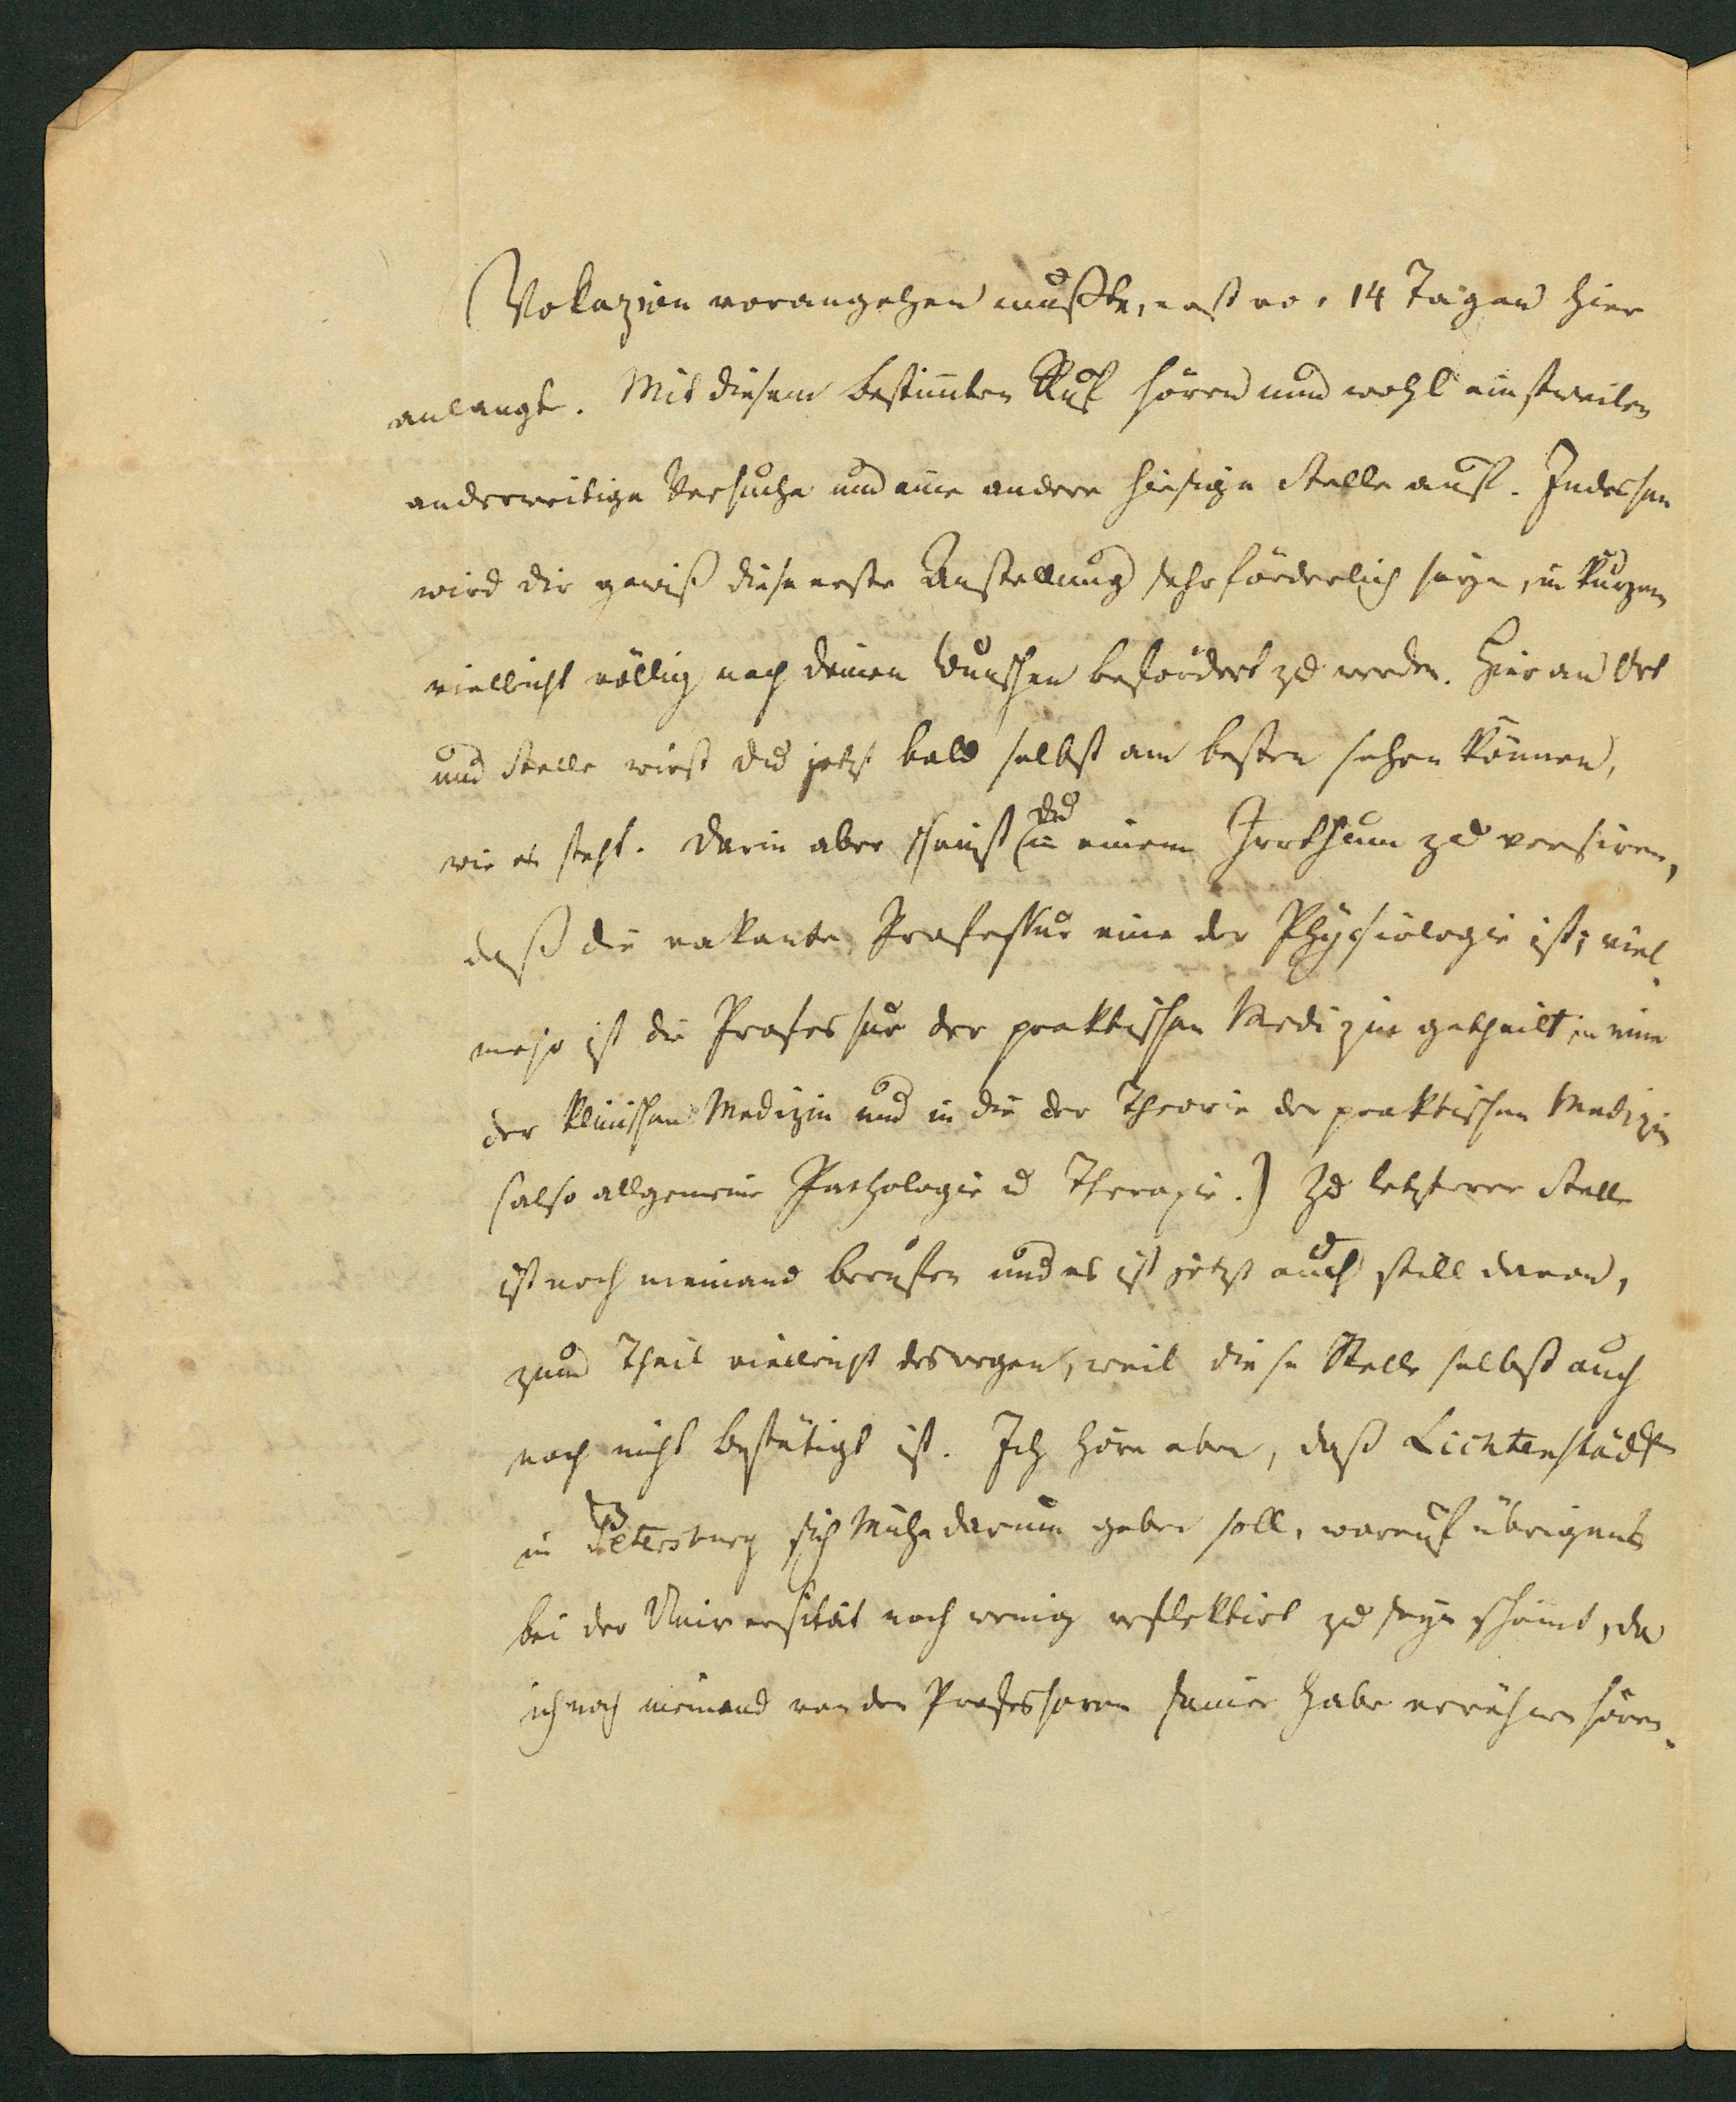 Vokazion vorangehen mußte, erst vor 14 Tagen hier
anlangte. Mit diesem bestimten Ruf hören nun wohl einstweilen
anderweitige Versuche um eine andere hiesige Stelle auf. Indessen
wird dir gewiß diese erste Anstellung sehr förderlich seyn, in kurzem
vielleicht völlig nach deinen Wunschen befördert zu werden. Hier an Ort
und Stelle wirst du jetzt bald selbst am besten sehen können,
wie es steht. Darin aber scheinst du in einem Irrthum zu versiren,
daß die vakante Professur eine der Physiologie ist; viel-
mehr ist die Professur der praktischen Medizin getheilt in eine
der klinischen Medizin und in die der Theorie der praktischen Medizin
(also allgemeine Pathologie u Therapie.) Zu letzterer Stelle
ist noch niemand berufen und es ist jetzt auch still davon,
zum Theil vielleicht deswegen, weil diese Stelle selbst auch
noch nicht bestätigt ist. Ich höre aber, daß Lichtenstädt
in Petersburg sich Mühe darum geben soll, worauf übrigens
bei der Universität noch wenig reflektirt zu seyn scheint, da
ich noch niemand von den Professoren seiner habe erwähnen hören.